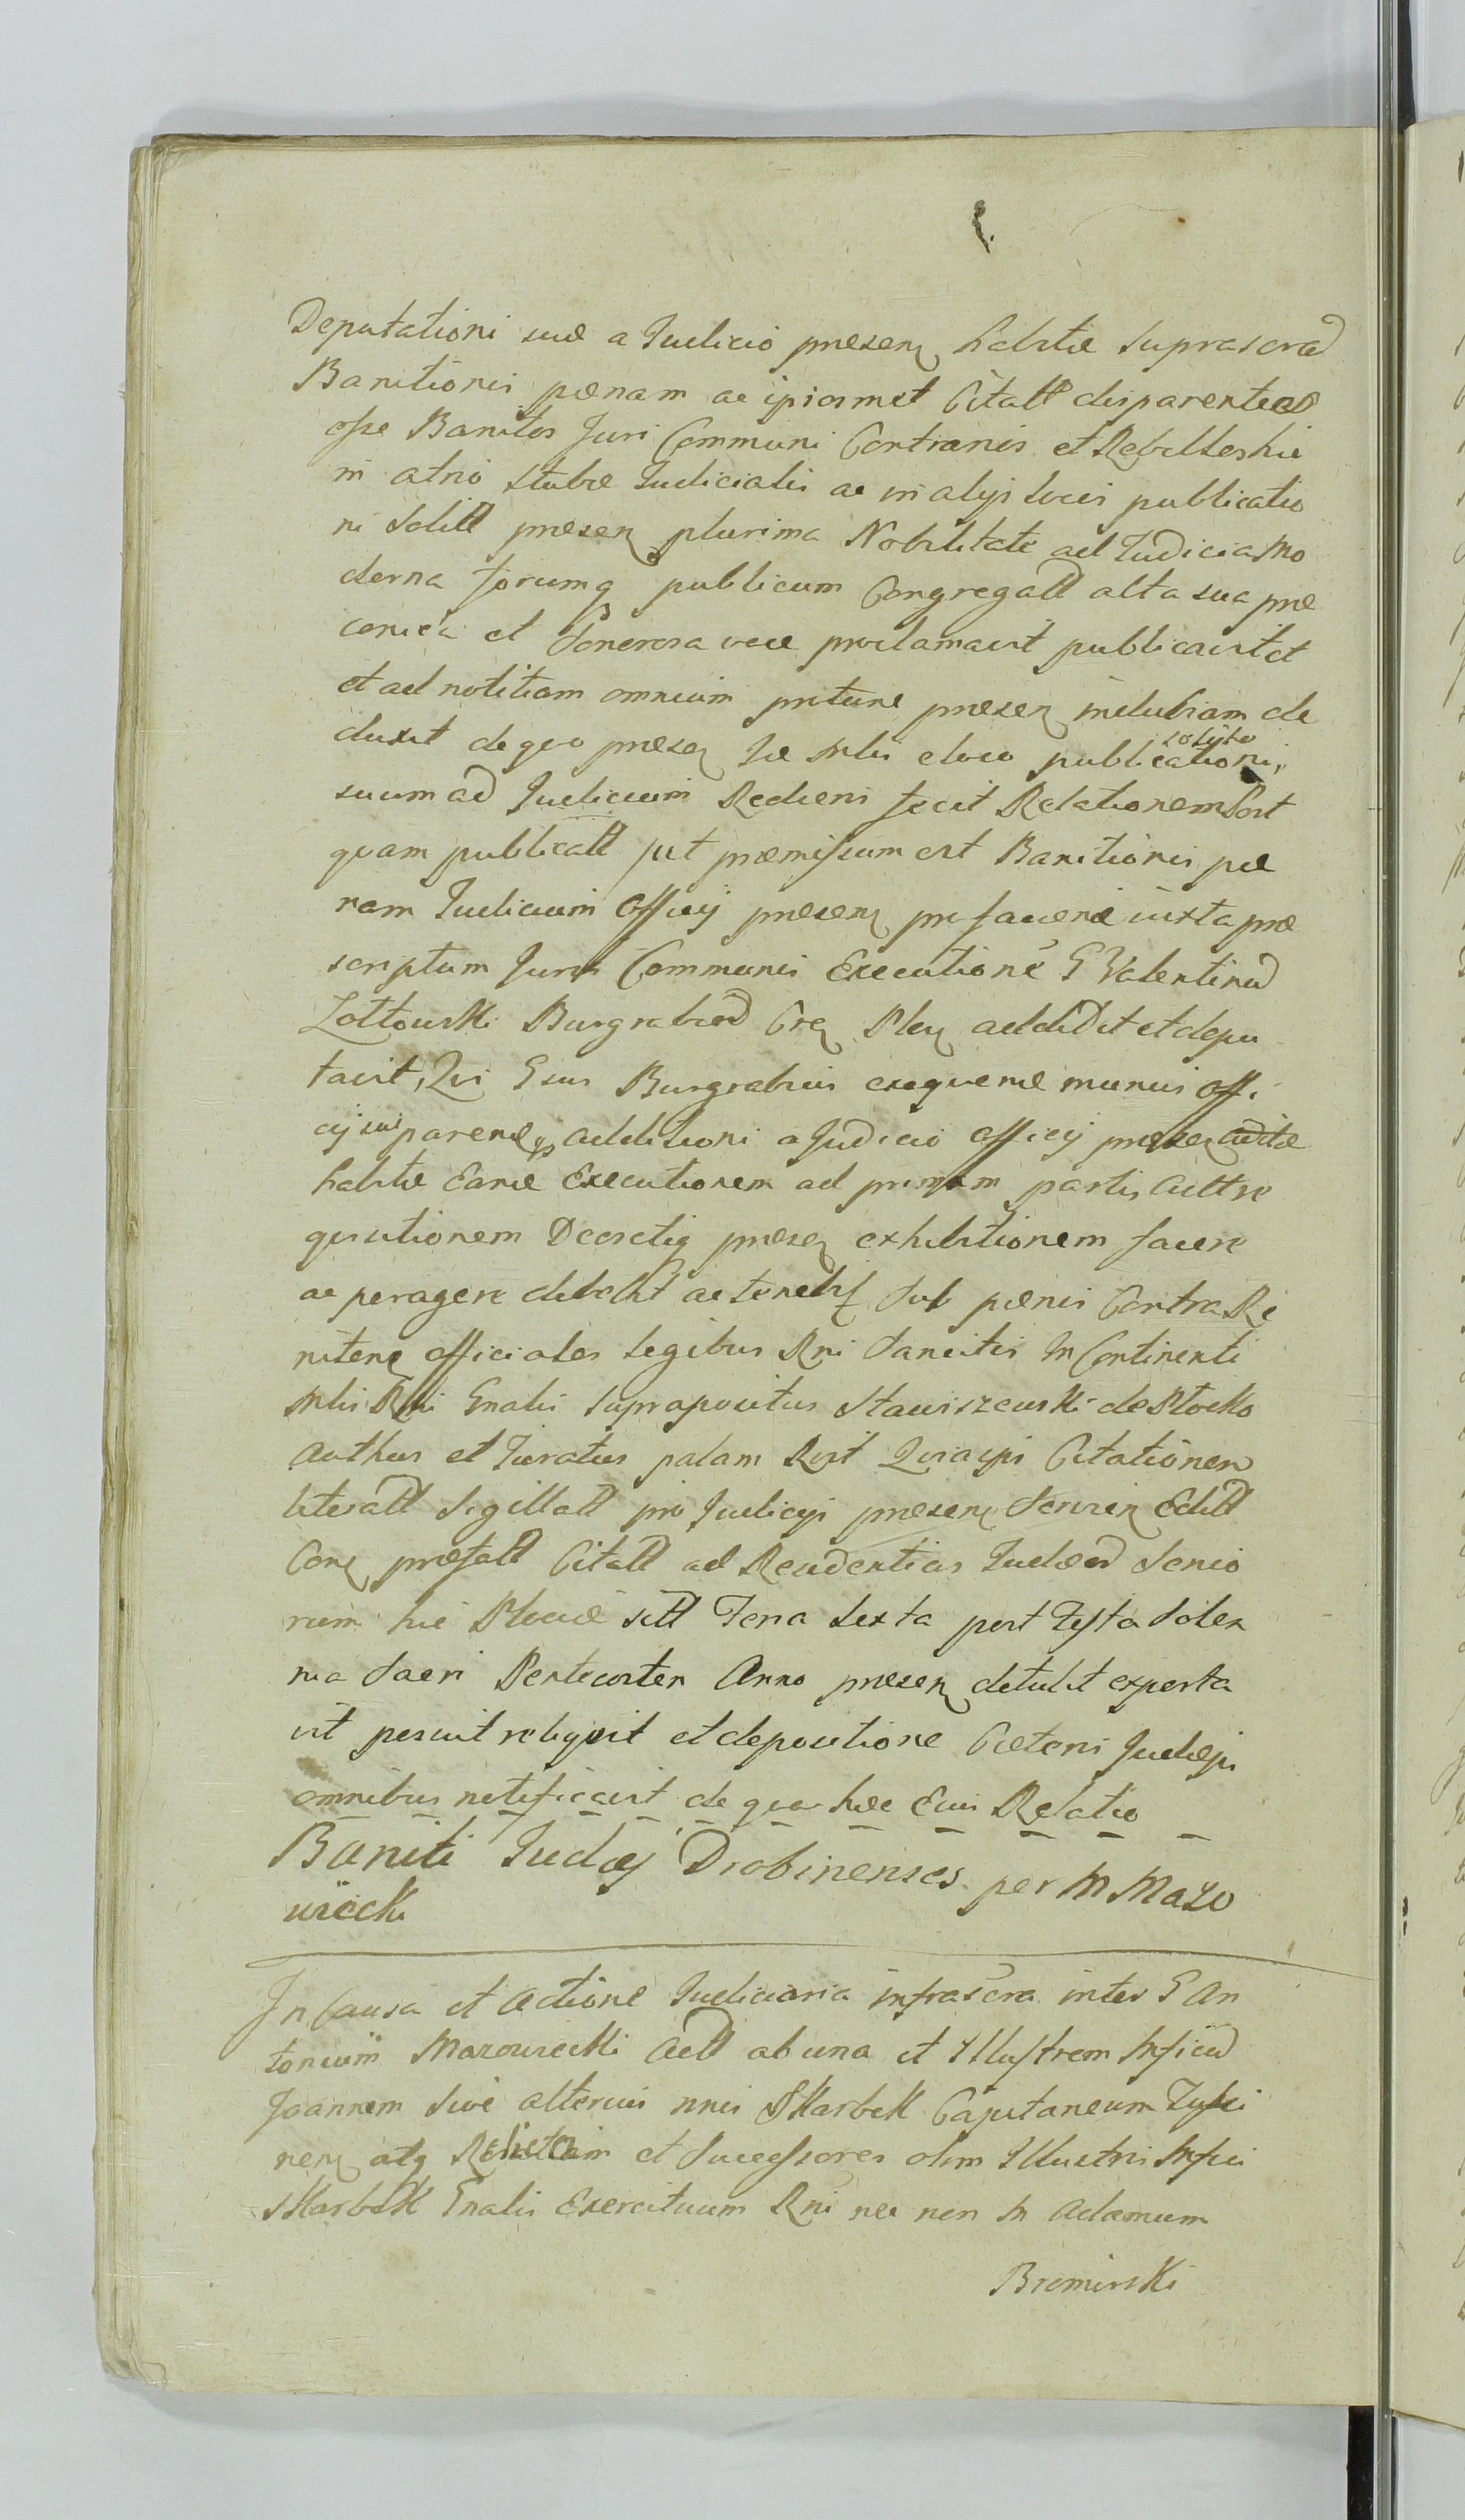 Deputationi suæ a Judicio præsen habitæ suprascrad
Banitionis pænam ac ipsosmet Citatt disparentes
osse Banitos Juri Communi Contrarios et Rebelles hic
in atrio stubæ Judicialis ac in alijs locis publicatio
ni solitt præsen plurima Nobilitate ad Judicia Mo
derna forumq publicum Congregatt alta sua præ
conica et Sonorosa voce proclamavit publicavit et
et ad notitiam omnium protunc præsen indubiam de
duxit de quo præsen Je Mlis eloco publicationi solito
suum ad Judicium Rediens fecit Relationem Post
quam publicatt put præmissum est Banitionis pæ
nam Judicium Officij præsen pro faciend iuxta præ
scriptum Juris Communis Executione G Valentinud
Zottowski Burgrabied Cren Plen addidit et depu
tavit, Qui Gsus Burgrabius exequend munus offi
cij sui parendq additioni a Judicio officij præsen
habitæ Eand Executionem ad primam partis Acttre
quisitionem Decretiq præsen exhibitionem facere
ac peragere debebit ac tenebit sub pænis Contra Re
niten officiales legibus Rni Sancitis In Continenti
Mlis Rni Gnalis suprapositus Staniszewski de Płocko
Authus et Juratus palam Rvit Quia ipse Citationem
literatt Sigillatt pro Judicijs præsen Servien Editt
Con præfatt Citatt ad Residentias Judæod Senio
rum hic Plociæ sitt Feria Sexta post Festa Solen
nia Sacri Pentecostes Anno præsen detulit exporta
vit posuit reliquit et depositione Cæteris Judæis
omnibus notificavit de quo hæc Eius Relatio
Baniti Judæj Drobinenses per M Mazo
wiecki
In Causa et Actione Judiciaria infrascra inter G An
tonium Mazowiecki Actt ab una et Illustrem Mficud
Joannem sive alterius nnis Skarbek Capitaneum Tyszi
nen atq Relictam et Successores olim Illustris Mfici
Skarbek Gnalis Exercituum Rni nec non M Adamum
Bromirski